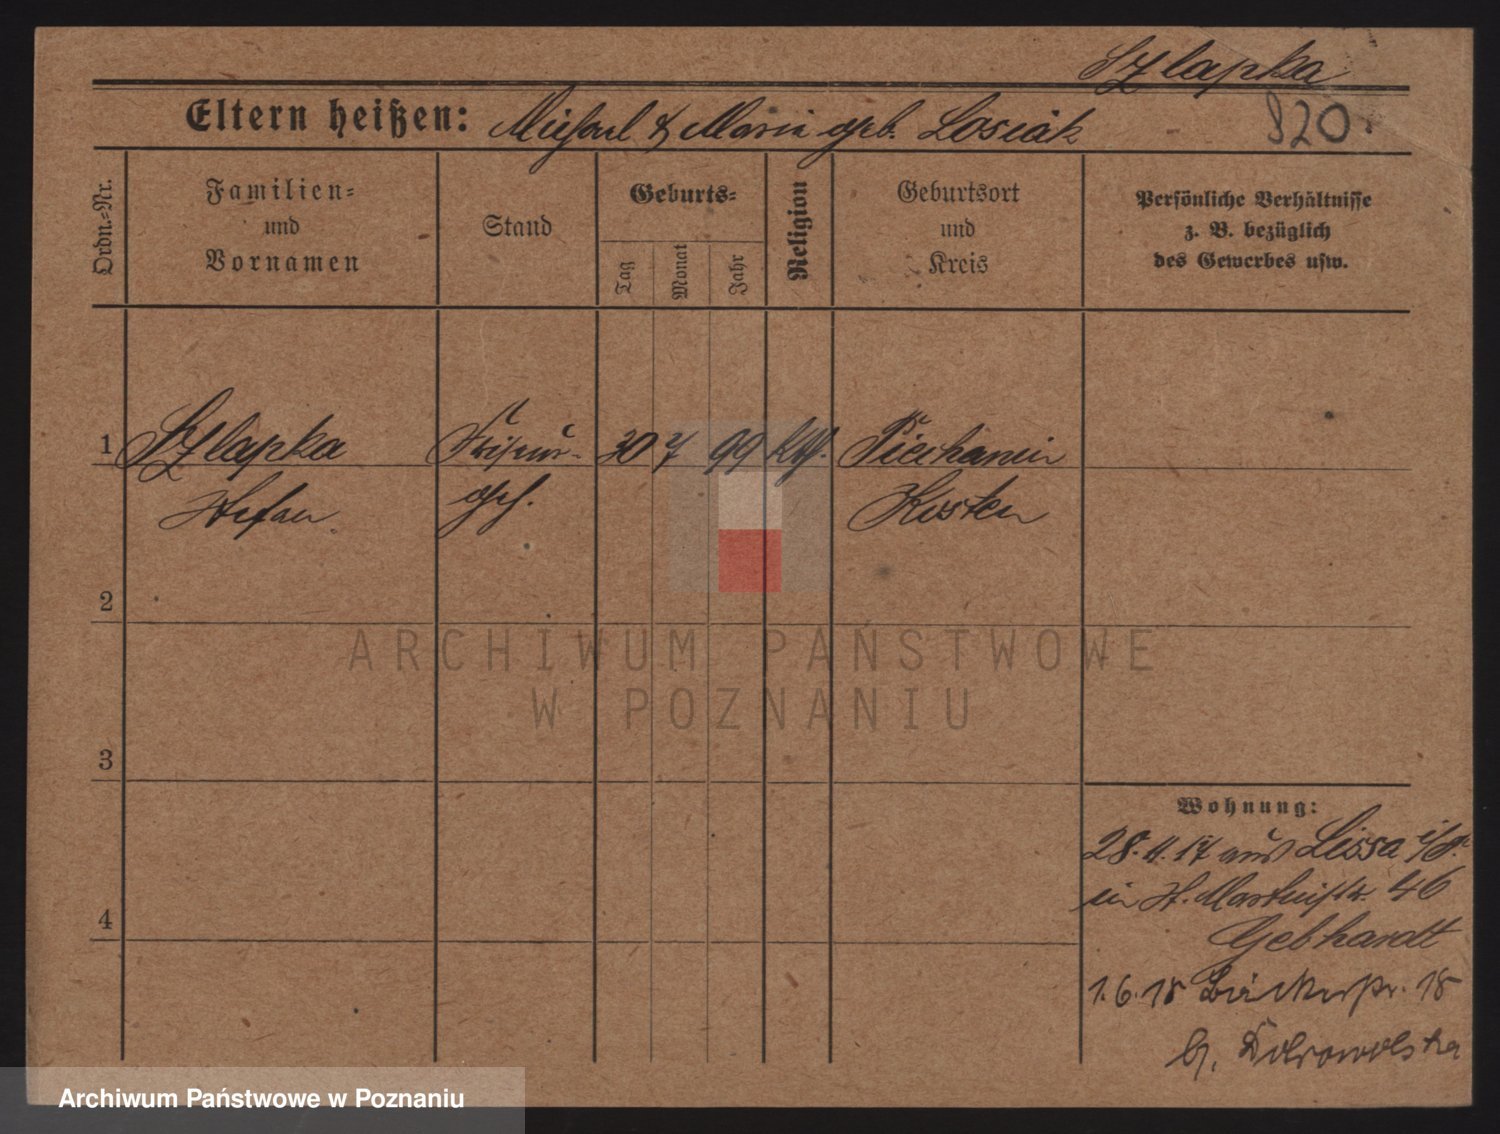 Szlapka
Eltern heißen: Michael & Maria geb. Losiak
820.
Ordn.-Nr.
Familien-
und
Vornamen
Stand
Geburts-
Tag
Monat
Jahr
Religion
Geburtsort
und
Kreis
Persönliche Verhältnisse
z. B. bezüglich
des Gewerbes usw.
1 Szlapka Friseur- 30 7 99 kth. Piechanin
Stefan geh. Kosten
2
3
4
Wohnung:
28. 11. 17 aus Lissa i/P.
in St. Martinstr. 46
Gebhardt
1. 6. 18 Bäckerstr. 18
b. Dobrowolska
ARCHIWUM PAŃSTWOWE
W POZNANIU
Archiwum Państwowe w Poznaniu